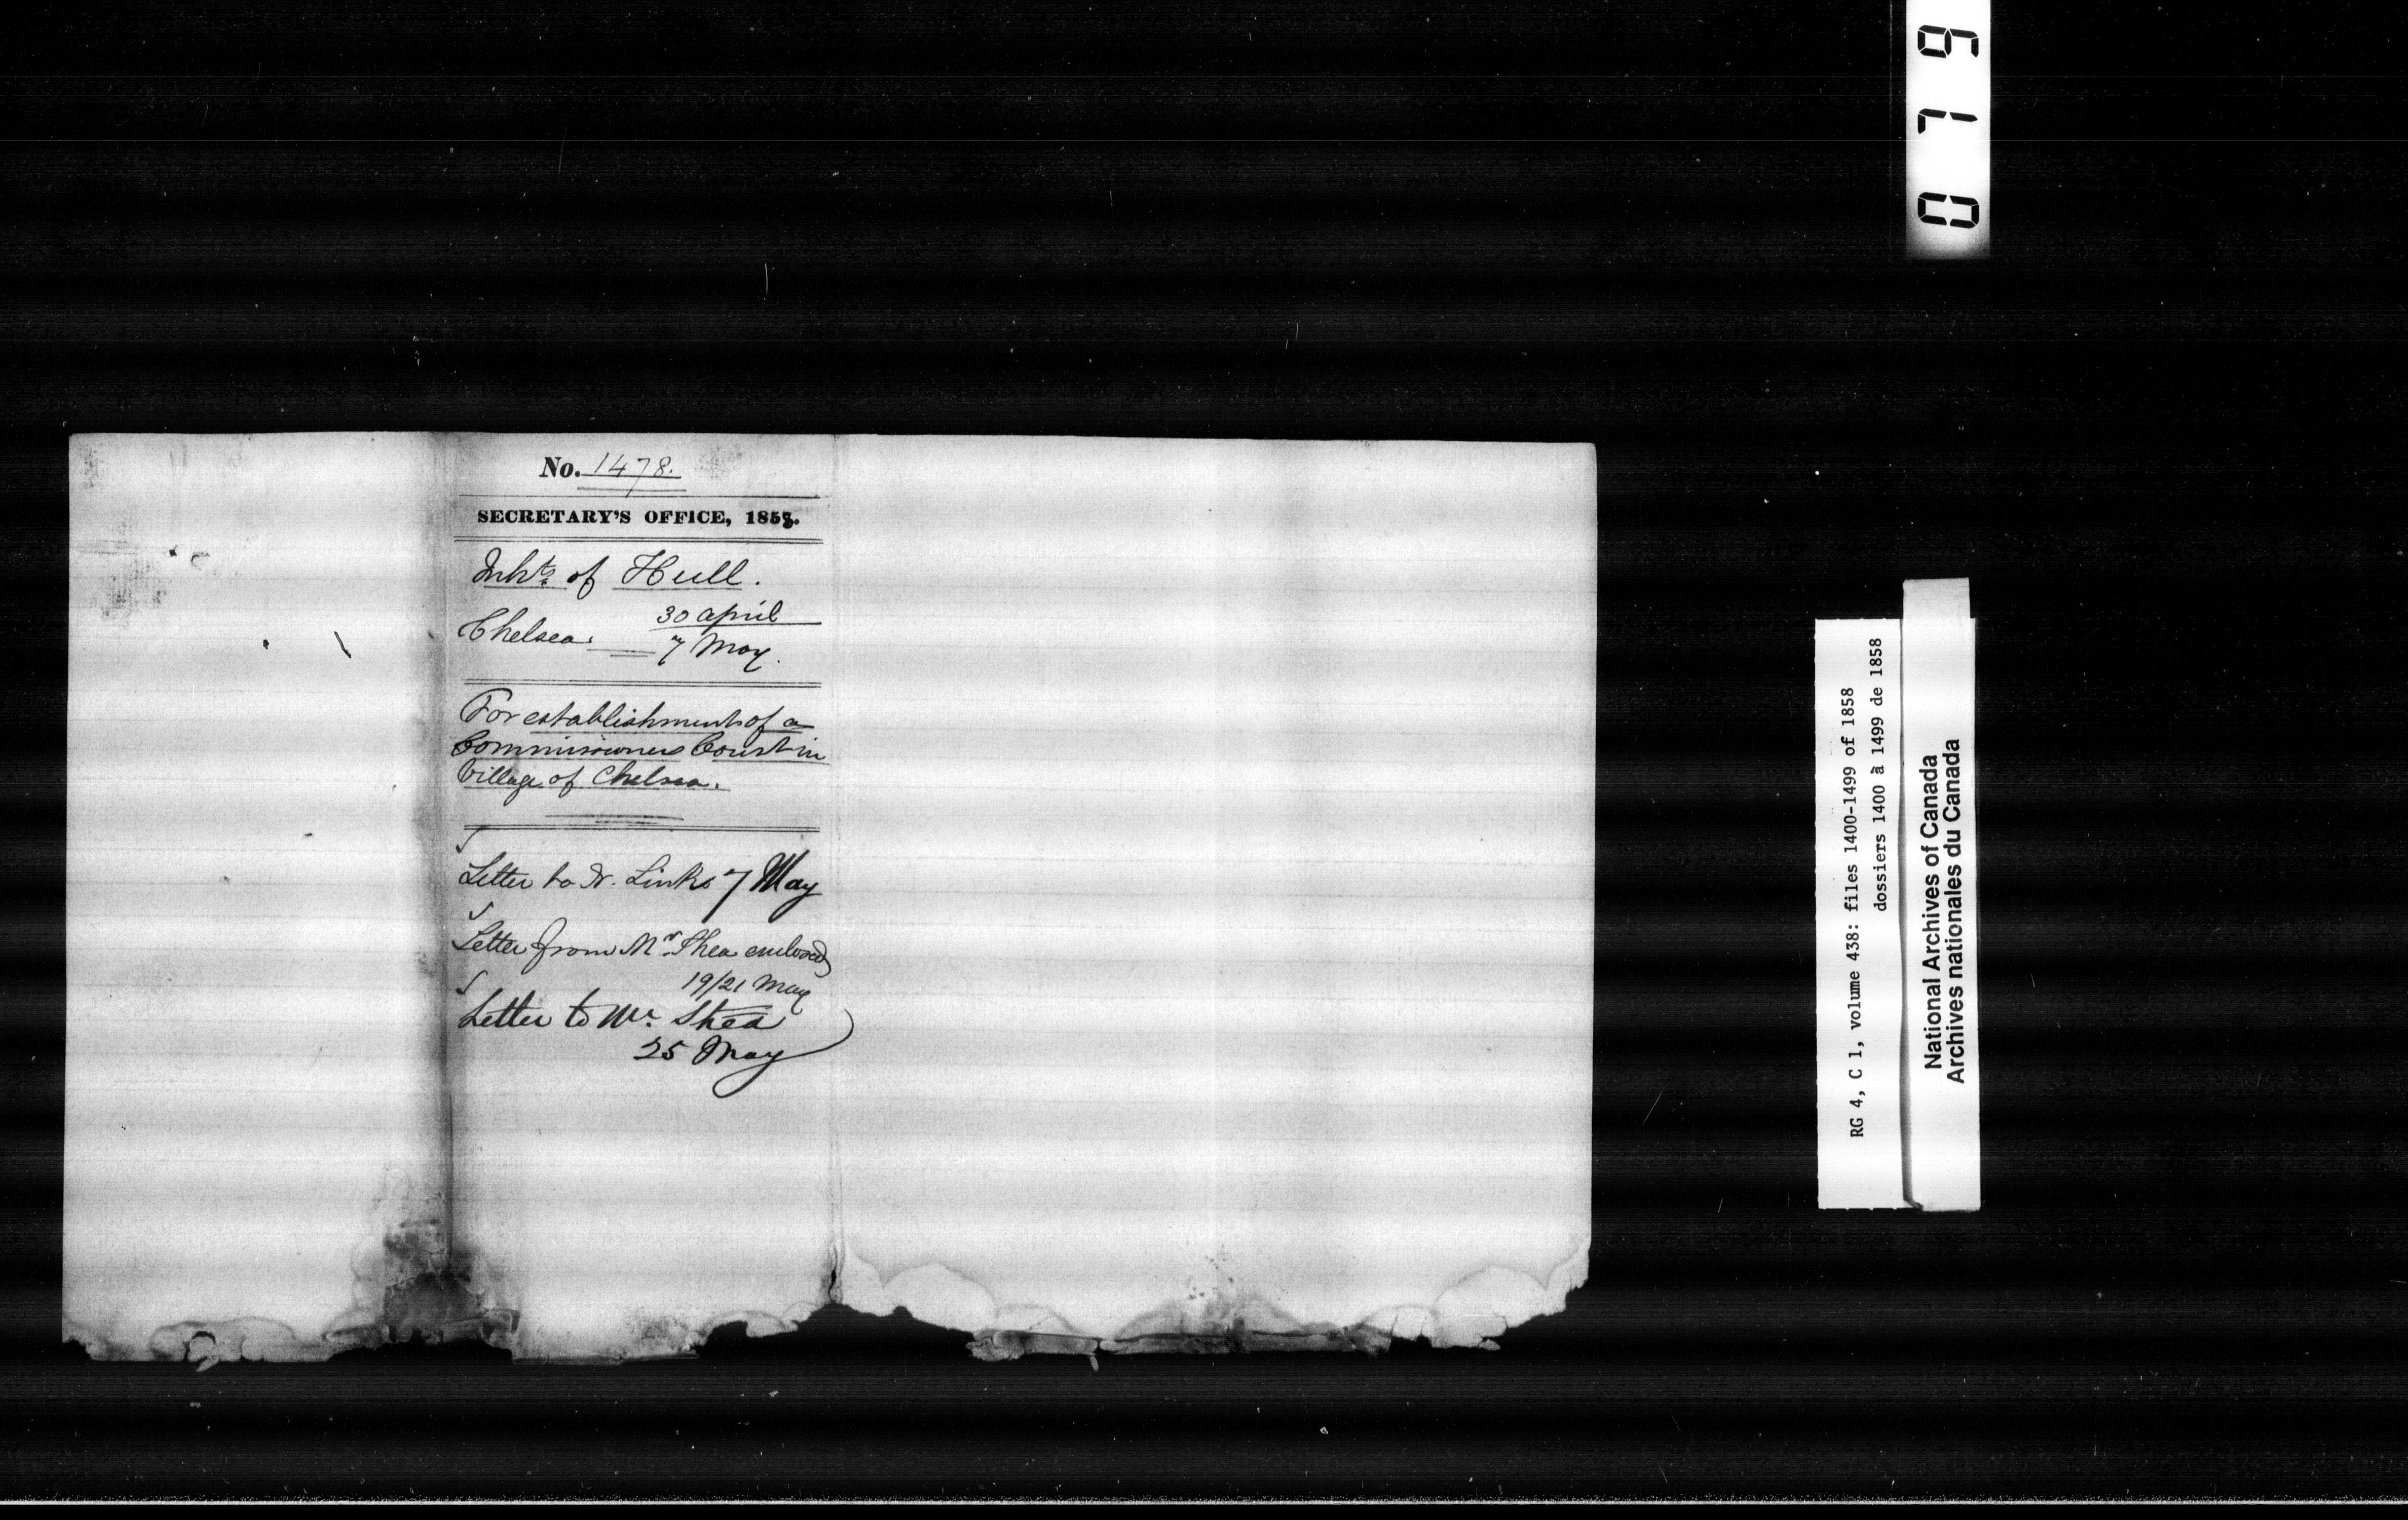 No. 1478.
SECRETARY'S OFFICE, 1858.
Inhts. of Hull.
30 April
Chelsea.
7 May.
For establishment of a
Commissioners Court in
Village of Chelsea.
Letter to W. Links 7 May
Letter from Mr Shea enclosed
19/21 May
Letter to Mr. Shea
25 May
0719
RG 4, C 1, volume 438: files 1400-1499 of 1858
dossiers 1400 à 1499 de 1858
National Archives of Canada
Archives nationales du Canada